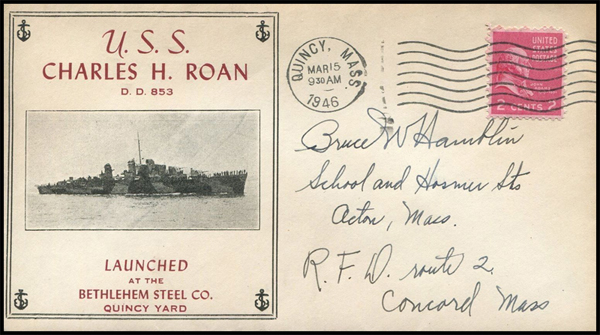 U. S. S.
CHARLES H. ROAN
D. D. 853
LAUNCHED
AT THE
BETHLEHEM STEEL CO.
QUINCY YARD
QUINCY, MASS.
MAR 15
9 30 AM
1946
UNITED
STATES
POSTAGE
2 CENTS 2
Bruce W Hamblin
School and Hosmer Sts
Acton, Mass.
R. F. D. route 2.
Concord Mass